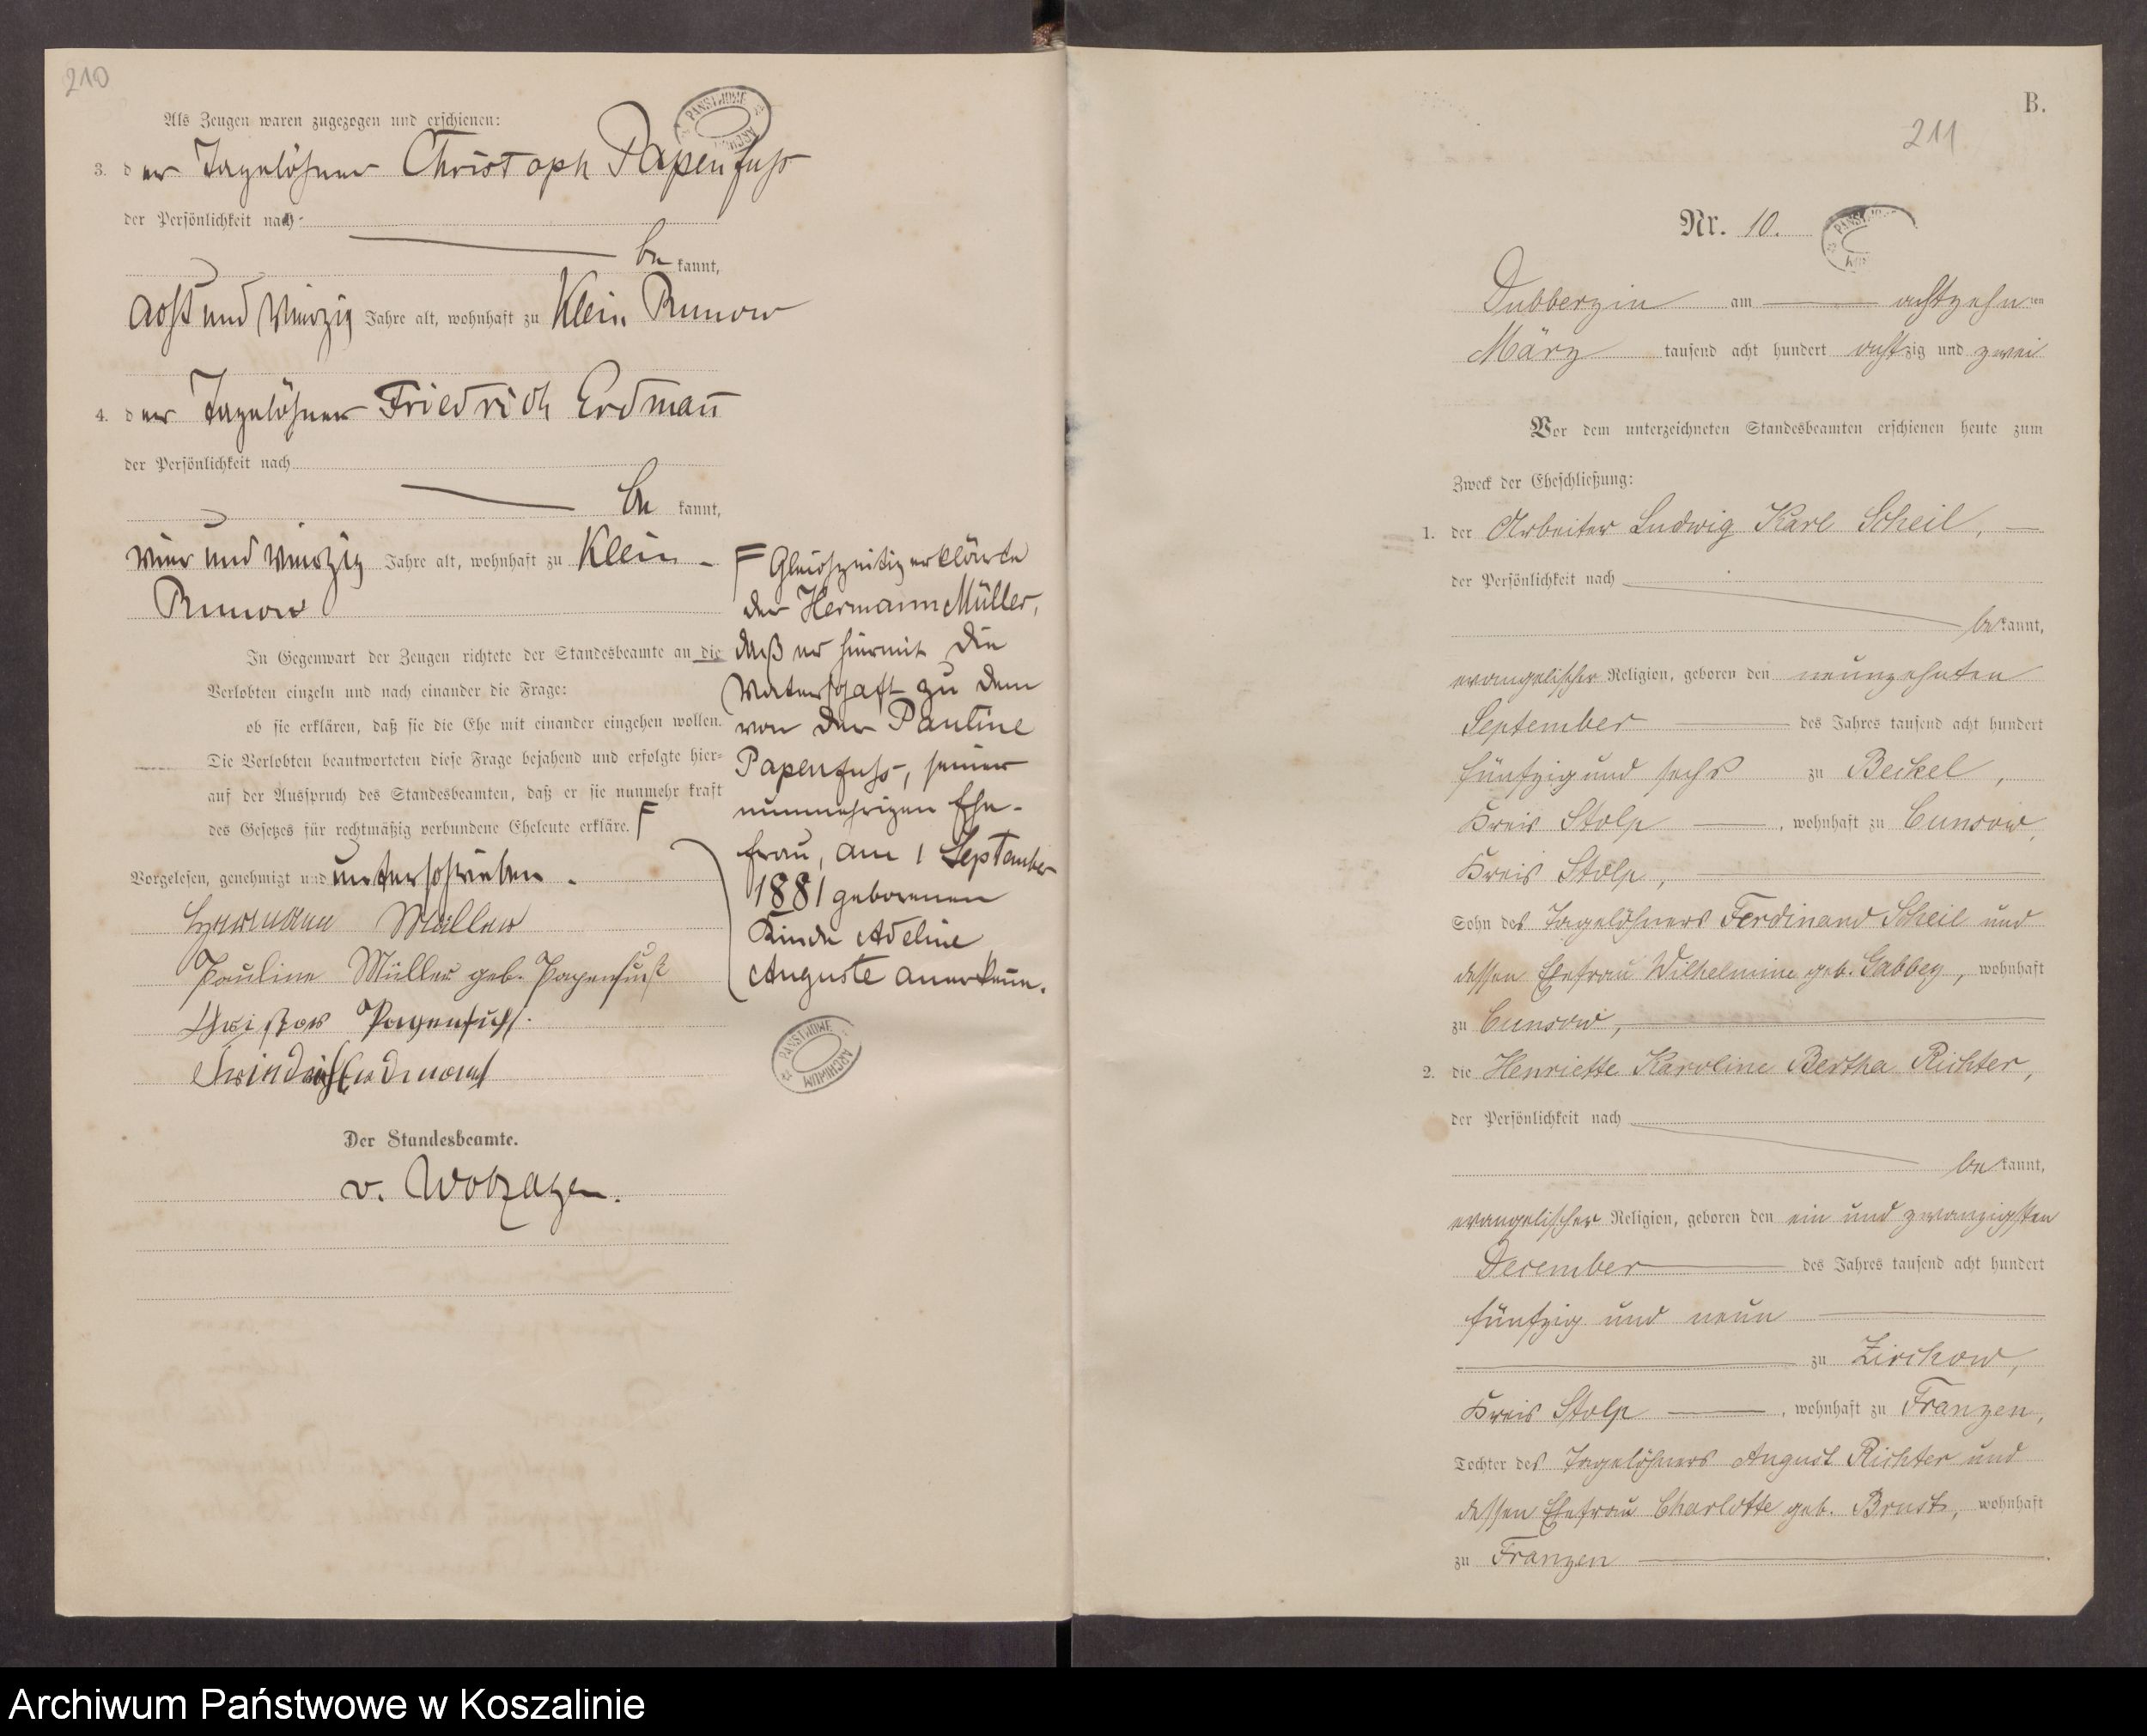 210
Als Zeugen waren zugezogen und erschienen:
3. der Tagelöhner Christoph Papenfuss
der Persönlichkeit nach
be kannt,
acht und vierzig Jahre alt, wohnhaft zu Klein Runow
4. der Tagelöhner Friedrich Erdmañ
der Persönlichkeit nach
be kannt,
vier und vierzig Jahre alt, wohnhaft zu Klein-
Runow
In Gegenwart der Zeugen richtete der Standesbeamte an die
Verlobten einzeln und nach einander die Frage:
ob sie erklären, daß sie die Ehe mit einander eingehen wollen.
Die Verlobten beantworteten diese Frage bejahend und erfolgte hier-
auf der Ausspruch des Standesbeamten, daß er sie nunmehr kraft
des Gesetzes für rechtmäßig verbundene Eheleute erkläre. F
Vorgelesen, genehmigt und unterschrieben.
Hermann Müller
Pauline Müller geb. Papenfuß
Papenfuß.
Friedrich Erdmann
Der Standesbeamte.
v.
F Gleichzeitig erklärte
der Hermann Müller,
daß er hiermit die
Vaterschaft zu dem
von der Pauline
Papenfuss, seiner
nunmehrigen Ehe-
frau, am 1 September
1881 geborenen
Kinde Adeline
Auguste anerkenne.
PAŃSTWOWE ARCHIWUM
B.
211
Nr. 10.
Dubberzin am achtzehn ten
März tausend acht hundert achtzig und zwei
Vor dem unterzeichneten Standesbeamten erschienen heute zum
Zweck der Eheschließung:
1. der Arbeiter Ludwig Karl Scheil,
der Persönlichkeit nach
be kannt,
evangelischer Religion, geboren den neunzehnten
September des Jahres tausend acht hundert
fünfzig und sechs zu Beckel,
Kreis Stolp, wohnhaft zu Cunsow,
Kreis Stolp,
Sohn des Tagelöhners Ferdinand Scheil und
dessen Ehefrau Wilhelmine geb. Gabbey, wohnhaft
zu Cunsow,
2. die Henriette Karoline Bertha Richter,
der Persönlichkeit nach
be kannt,
evangelischer Religion, geboren den ein und zwanzigsten
December des Jahres tausend acht hundert
fünfzig und neun
zu Zirchow,
Kreis Stolp, wohnhaft zu Franzen,
Tochter des Tagelöhners August Richter und
dessen Ehefrau Charlotte geb. Brust, wohnhaft
zu Franzen
Archiwum Państwowe w Koszalinie